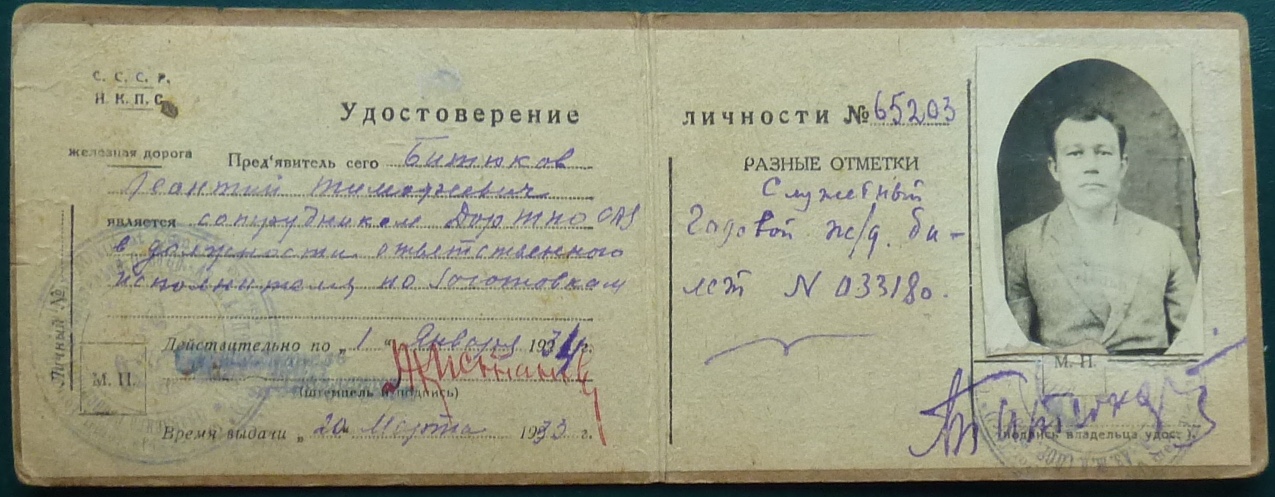 С. С. С. Р.
Н. К. П. С.
Удостоверение
железная дорога
Пред'явитель сего Битюков
Тимофеевич
является сотрудником
в должности ответственного
исполнителя по заготовкам
Личный №
Действительно по „ 1 “ Января 1934 г.
М. П.
(штемпель и подпись)
Время выдачи „ 20 “ Марта 1933 г.
ЛИЧНОСТИ № 65203
РАЗНЫЕ ОТМЕТКИ
Служебный
Годовой ж/д. би-
лет N 033180.
М. П.
(подпись владельца удост.)